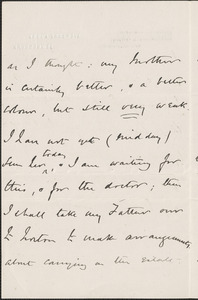 as I thought: my Mother
is certainly better, & a better
colour, but still very weak
I have not yet (Mid day)
seen her today, & I am waiting for
this, & for the doctor; then
I shall take my Father over
to Norton to make arrangements
about carrying on the